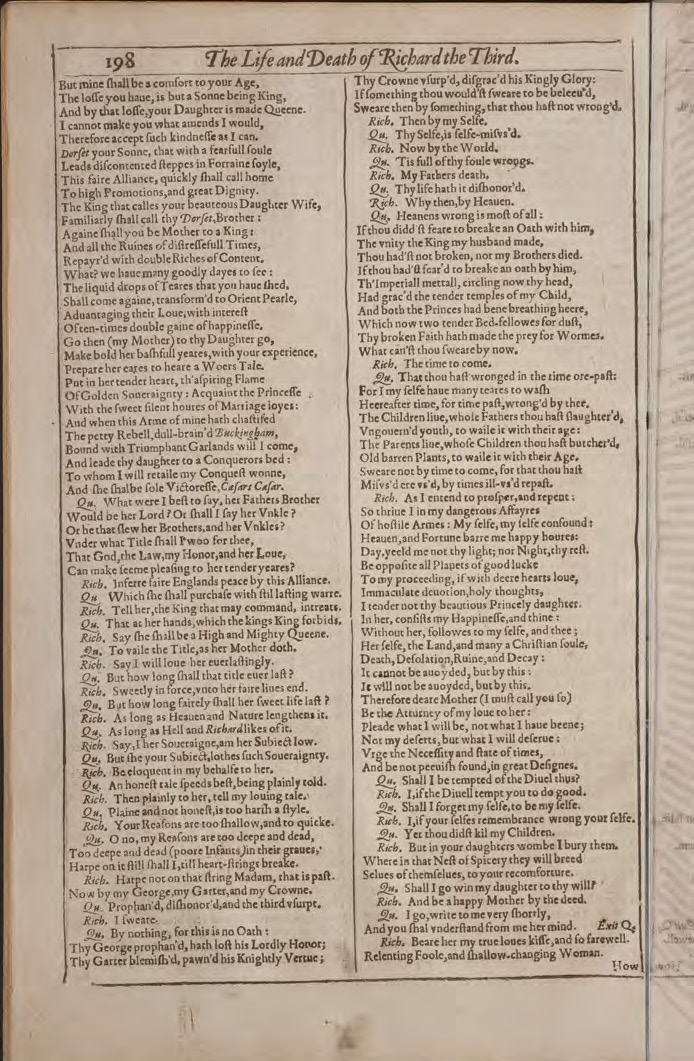 198
The Life and Death of Richard the Third.
But mine ſhall be a comfort to your Age,
The loſſe you haue, is but a Sonne being King,
And by that loſſe, your Daughter is made Queene.
I cannot make you what amends I would,
Therefore accept ſuch kindneſſe as I can.
Dorſet your Sonne, that with a fearfull ſoule
Leads diſcontented ſteppes in Forraine ſoyle,
This faire Alliance, quickly ſhall call home
To high Promotions, and great Dignity.
The King that calles your beauteous Daughter Wife,
Familiarly ſhall call thy Dorſet, Brother:
Againe ſhall you be Mother to a King:
And all the Ruines of diſtreſſefull Times,
Repayr'd with double Riches of Content.
What? we haue many goodly dayes to ſee:
The liquid drops of Teares that you haue ſhed,
Shall come againe, transform'd to Orient Pearle,
Aduantaging their Loue, with intereſt
Often-times double gaine of happineſſe.
Go then (my Mother) to thy Daughter go,
Make bold her baſhfull yeares, with your experience,
Prepare her eares to heare a Woers Tale.
Put in her tender heart, th'aſpiring Flame
Of Golden Soueraignty: Acquaint the Princeſſe
With the ſweet ſilent houres of Marriage ioyes:
And when this Arme of mine hath chaſtiſed
The petty Rebell, dull-brain'd Buckingham,
Bound with Triumphant Garlands will I come,
And leade thy daughter to a Conquerors bed:
To whom I will retaile my Conqueſt wonne,
And ſhe ſhalbe ſole Victoreſſe, Cæſars Cæſar.
Qu. What were I beſt to ſay, her Fathers Brother
Would be her Lord? Or ſhall I ſay her Vnkle?
Or he that ſlew her Brothers, and her Vnkles?
Vnder what Title ſhall I woo for thee,
That God, the Law, my Honor, and her Loue,
Can make ſeeme pleaſing to her tender yeares?
Rich. Inferre faire Englands peace by this Alliance.
Qu Which ſhe ſhall purchaſe with ſtil laſting warre.
Rich. Tell her, the King that may command, intreats.
Qu. That at her hands, which the kings King forbids.
Rich. Say ſhe ſhall be a High and Mighty Queene.
Qu. To vaile the Title, as her Mother doth.
Rich. Say I will loue her euerlaſtingly.
Qu. But how long ſhall that title euer laſt?
Rich. Sweetly in force, vnto her faire liues end.
Qu. But how long fairely ſhall her ſweet life laſt?
Rich. As long as Heauen and Nature lengthens it.
Qu. As long as Hell and Richard likes of it.
Rich. Say, I her Soueraigne, am her Subiect low.
Qu. But ſhe your Subiect, lothes ſuch Soueraignty.
Rich. Be eloquent in my behalfe to her.
Qu. An honeſt tale ſpeeds beſt, being plainly told.
Rich. Then plainly to her, tell my louing tale.
Qu. Plaine and not honeſt, is too harſh a ſtyle.
Rich. Your Reaſons are too ſhallow, and to quicke.
Qu. O no, my Reaſons are too deepe and dead,
Too deepe and dead (poore Infants) in their graues,
Harpe on it ſtill ſhall I, till heart-ſtrings breake.
Rich. Harpe not on that ſtring Madam, that is paſt.
Now by my George, my Garter, and my Crowne.
Qu. Prophan'd, diſhonor'd, and the third vſurpt.
Rich. I ſweare.
Qu. By nothing, for this is no Oath:
Thy George prophan'd, hath loſt his Lordly Honor;
Thy Garter blemiſh'd, pawn'd his Knightly Vertue;
Thy Crowne vſurp'd, diſgrac'd his Kingly Glory:
If ſomething thou would'ſt ſweare to be beleeu'd,
Sweare then by ſomething, that thou haſt not wrong'd.
Rich. Then by my Selfe.
Qu. Thy Selfe, is ſelfe-miſvs'd.
Rich. Now by the World.
Qu. 'Tis full of thy foule wrongs.
Rich. My Fathers death.
Qu. Thy life hath it diſhonor'd.
Rich. Why then, by Heauen.
Qu. Heanens wrong is moſt of all:
If thou didd'ſt feare to breake an Oath with him,
The vnity the King my husband made,
Thou had'ſt not broken, nor my Brothers died.
If thou had'ſt fear'd to breake an oath by him,
Th'Imperiall mettall, circling now thy head,
Had grac'd the tender temples of my Child,
And both the Princes had bene breathing heere,
Which now two tender Bed-fellowes for duſt,
Thy broken Faith hath made the prey for Wormes.
What can'ſt thou ſweare by now.
Rich. The time to come.
Qu. That thou haſt wronged in the time ore-paſt:
For I my ſelfe haue many teares to waſh
Heereafter time, for time paſt, wrong'd by thee.
The Children liue, whoſe Fathers thou haſt ſlaughter'd,
Vngouern'd youth, to waile it with their age:
The Parents liue, whoſe Children thou haſt butcher'd,
Old barren Plants, to waile it with their Age.
Sweare not by time to come, for that thou haſt
Miſvs'd ere vs'd, by times ill-vs'd repaſt.
Rich. As I entend to proſper, and repent:
So thriue I in my dangerous Affayres
Of hoſtile Armes: My ſelfe, my ſelfe confound:
Heauen, and Fortune barre me happy houres:
Day, yeeld me not thy light; nor Night, thy reſt.
Be oppoſite all Planets of good lucke
To my proceeding, if with deere hearts loue,
Immaculate deuotion, holy thoughts,
I tender not thy beautious Princely daughter.
In her, conſiſts my Happineſſe, and thine:
Without her, followes to my ſelfe, and thee;
Her ſelfe, the Land, and many a Chriſtian ſoule,
Death, Deſolation, Ruine, and Decay:
It cannot be auoyded, but by this:
It will not be auoyded, but by this.
Therefore deare Mother (I muſt call you ſo)
Be the Atturney of my loue to her:
Pleade what I will be, not what I haue beene;
Not my deſerts, but what I will deſerue:
Vrge the Neceſſity and ſtate of times,
And be not peeuiſh found, in great Deſignes.
Qu. Shall I be tempted of the Diuel thus?
Rich. I, if the Diuell tempt you to do good.
Qu. Shall I forget my ſelfe, to be my ſelfe.
Rich. I, if your ſelfes remembrance wrong your ſelfe.
Qu. Yet thou didſt kil my Children.
Rich. But in your daughters wombe I bury them.
Where in that Neſt of Spicery they will breed
Selues of themſelues, to your recomforture.
Qu. Shall I go win my daughter to thy will?
Rich. And be a happy Mother by the deed.
Qu. I go, write to me very ſhortly,
And you ſhal vnderſtand from me her mind. Exit Q.
Rich. Beare her my true loues kiſſe, and ſo farewell.
Relenting Foole, and ſhallow-changing Woman.
How